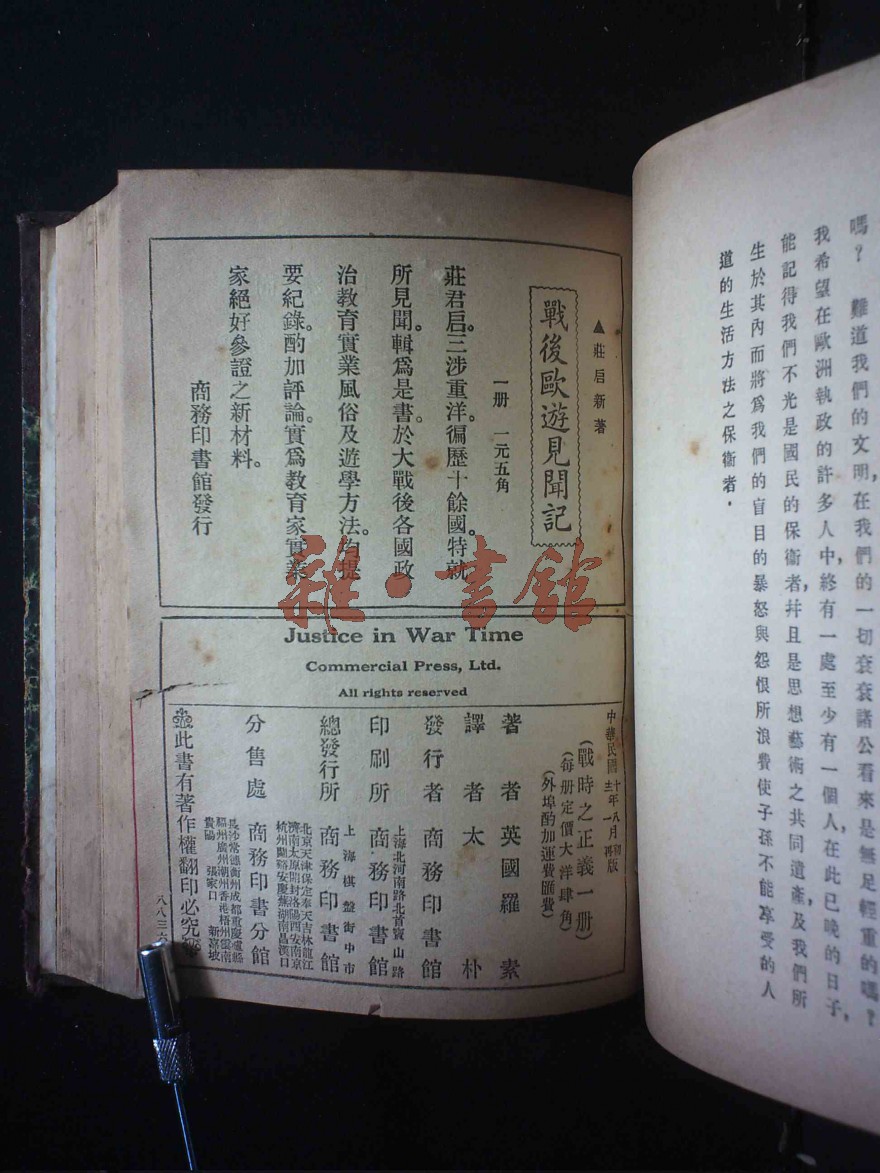 嗎?難道我們的文明,在我們的一切袞袞諸公看來是無足輕重的嗎?
我希望在歐洲執政的許多人中,終有一處至少有一個人,在此已晚的日子,
能記得我們不光是國民的保衛者,幷且是思想藝術之共同遺產,及我們所
生於其內而將爲我們的盲目的暴怒與怨恨所浪費使子孫不能享受的人
道的生活方法之保衛者.
▲莊启新著
戰後歐遊見聞記
一册 一元五角
莊君启。三涉重洋。徧歷十餘國。特就
所見聞。輯爲是書。於大戰後各國政
治教育實業風俗及遊學方法。均提
要紀錄。酌加評論。實爲教育家實業
家絕好參證之新材料。
商務印書館發行
雜·書館
Justice in War Time
Commercial Press, Ltd.
All rights reserved
中華民國
版
(戰時之正義一册)
(每册定價大洋肆角)
(外埠酌加運費匯費)
著者 英國羅素
譯者 太朴
發行者 商務印書館
印刷所 上海北河南路北首寶山路 商務印書館
總發行所 上海棋盤街中市 商務印書館
分售處 商務印書分館
北京天津保定奉天吉林龍江
濟南太原開封洛陽西安南京
杭州蘭谿安慶蕪湖南昌漢口
長沙常德衡州成都重慶瀘縣
福州廣州潮州香港梧州雲南
貴陽 張家口 新嘉坡
此書有著作權翻印必究
八八三